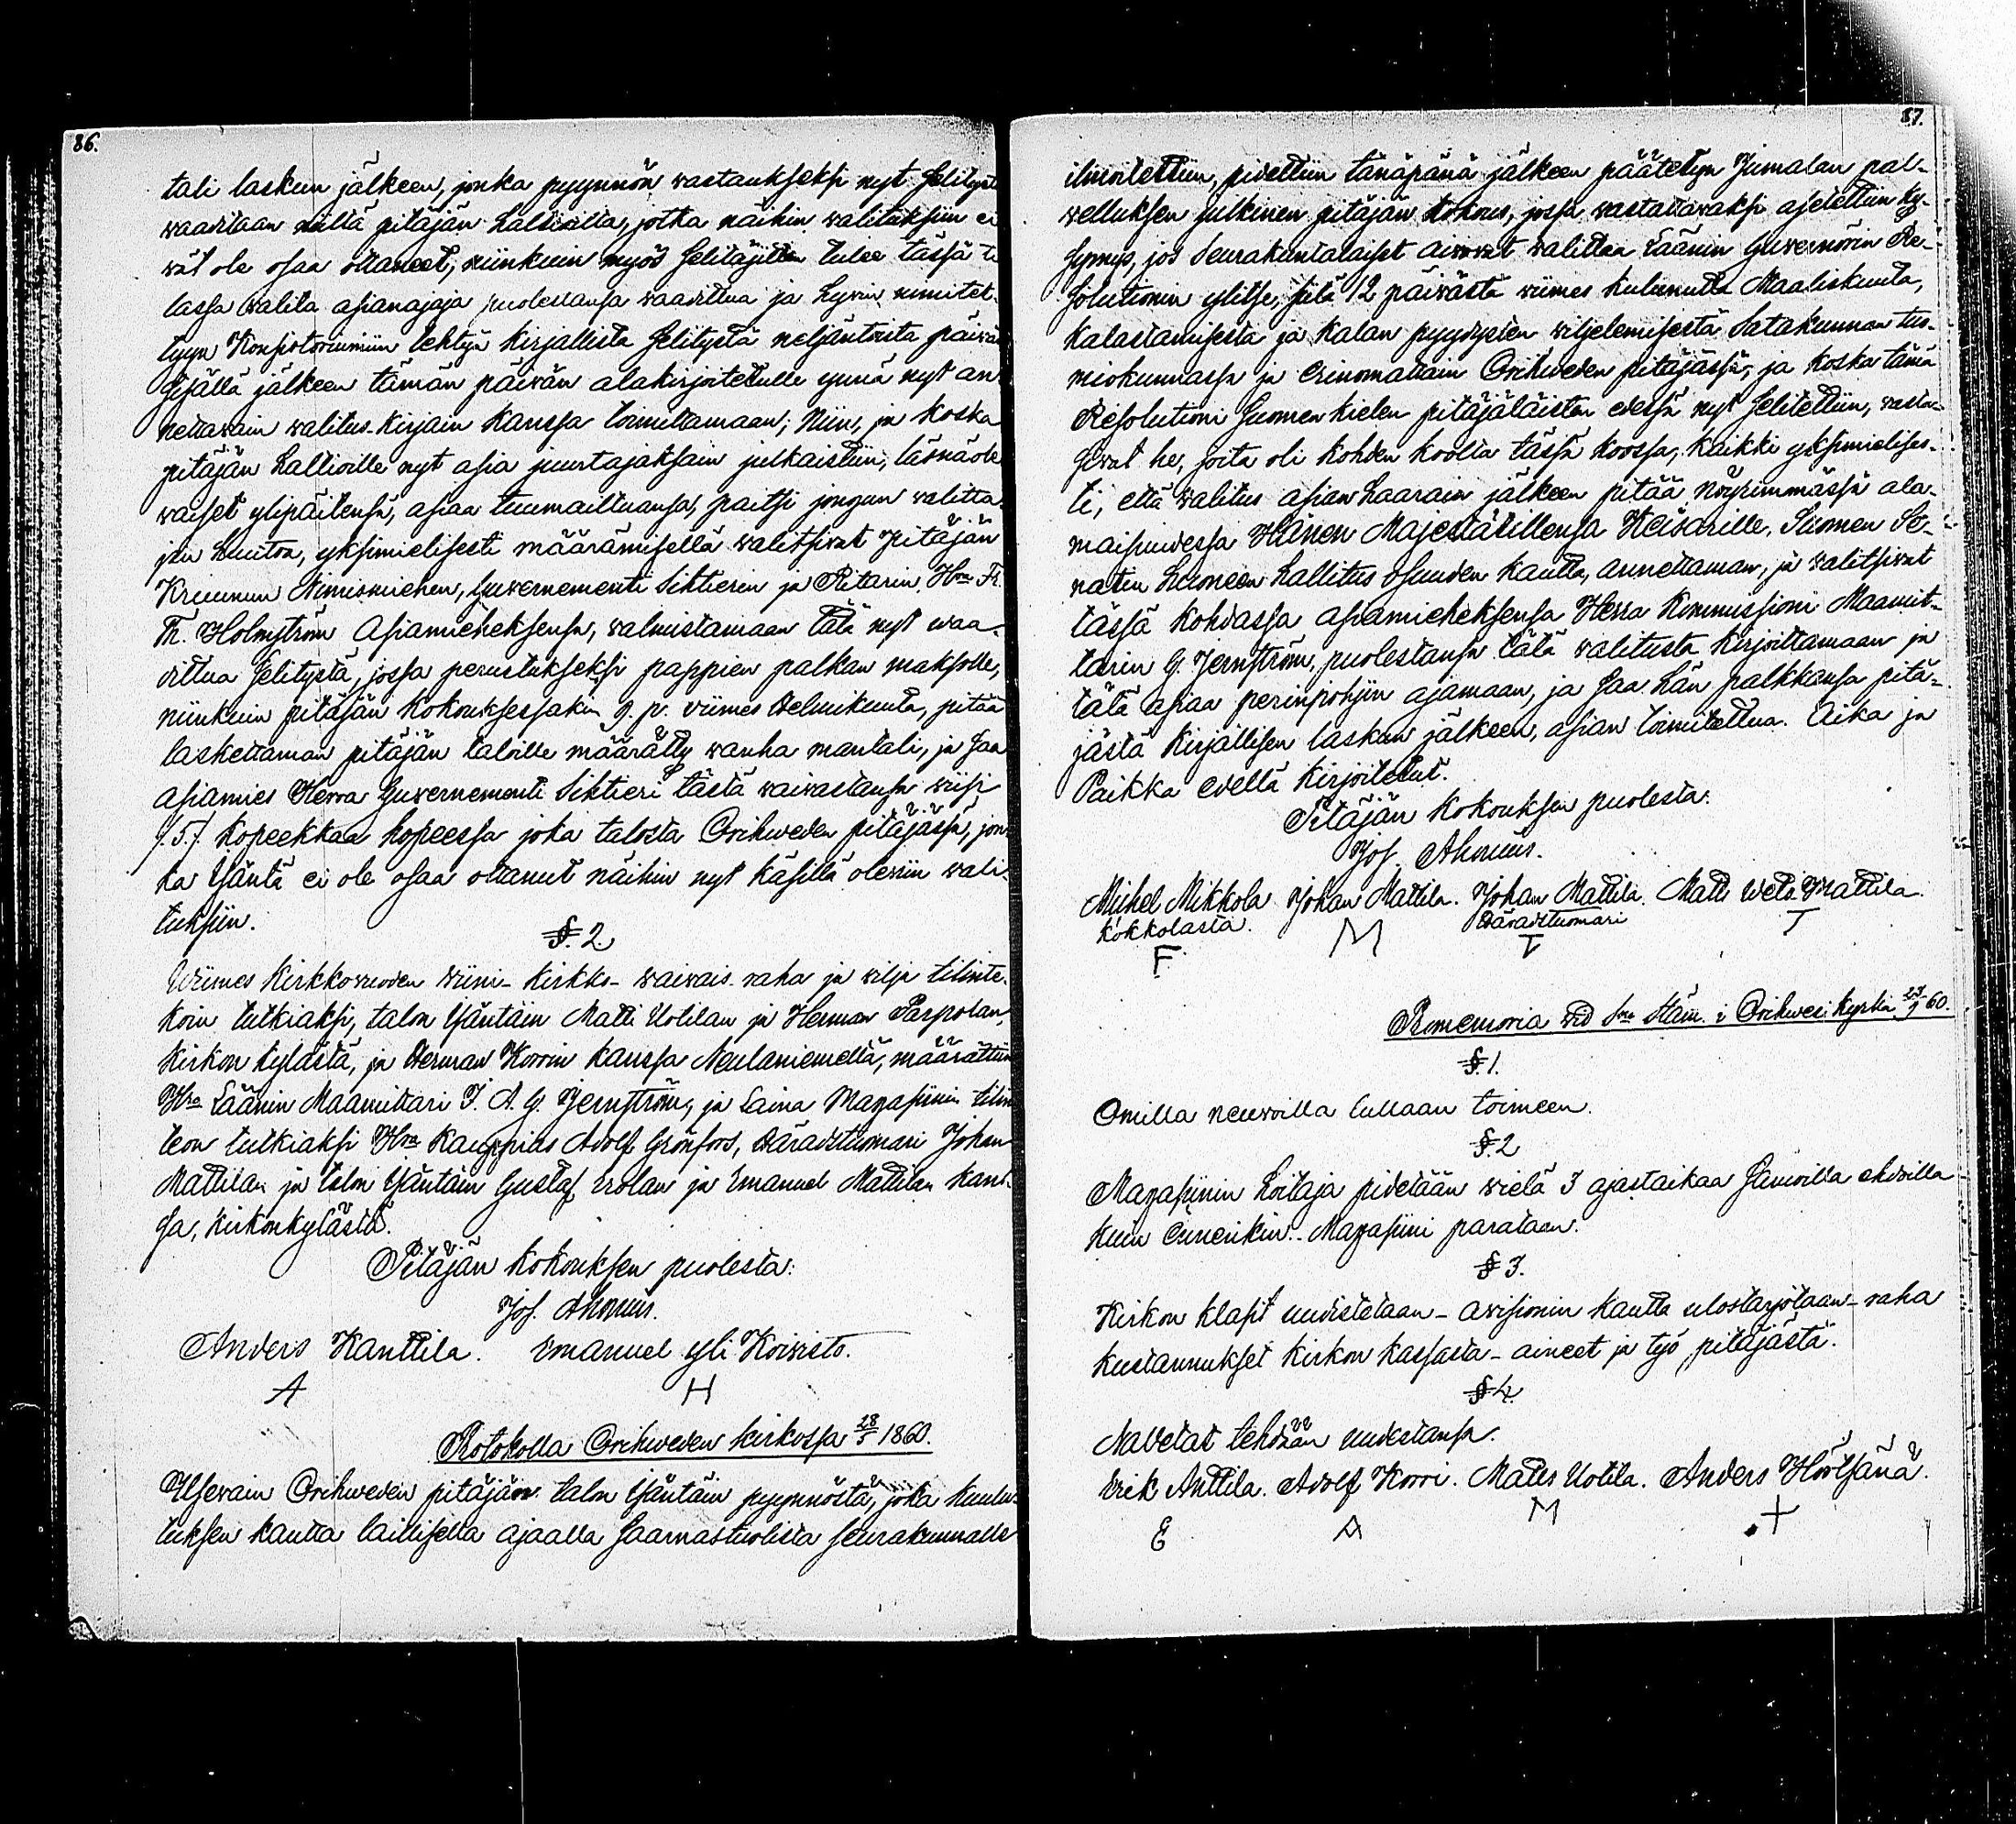 86.
tali laskun jälkeen, jonka pyynnön vastaukseksi nyt selitystä
vaaditaan niiltä pitäjän haltioilta, jotka näihin valituksiin ei
vät ole osaa ottaneet, niinkuin myös selitäjitten tulee tässä ti
lassa valita asianajaja puolestansa vaadittua ja hyvin nimitet-
tyyn Konsistoriumiin tehtyä kirjallista selitystä neljäntoista päivän
sisällä jälkeen tämän päivän alakirjoitetulle ynnä nyt an-
nettavain valitus-kirjain kanssa toimittamaan; Niin, ja koska
pitäjän haltioille nyt asia juurtajaksain julkaistiin, läsnäole
vaiset ylipäitensä, asiaa tuumailtuansa, paitsi jongun valitta-
jan huutoa, yksimielisesti määrämisellä valitsivat Pitäjän
Kruunun Nimismiehen, Guvernementi Sihtierin ja Ritarin Hrn Fr.
Th. Holmström Asiamieheksensä, valmistamaan tätä nyt vaa-
dittua selitystä, jossa perustukseksi pappien palkan maksolle,
niinkuin pitäjän kokouksessakin 9. p. viimes Helmikuuta, pitää
laskettaman pitäjän taloille määrätty vanha mantali, ja saa
asiamies Herra Guvernementi Sihtieri tästä vaivastansa viisi
/:5:/ kopeekkaa hopeessa joka talosta Orihweden pitäjässä, jon-
ka Isäntä ei ole osaa ottanut näihin nyt käsillä oleviin vali-
tuksiin.
§. 2.
Viimes Kirkkovuoden viini- kirkko- vaivais- raha ja vilja tilinte-
koin tutkiaksi, talon Isäntäin Matti Uotilan ja Herman Parpolan,
kirkon kylästä, ja Herman Korrin kanssa Neulaniemeltä, määrättiin
Hra Läänin Maamittari J. A. G. Jernström, ja Laina Magasiinin tilin
teon tutkiaksi Hra Kauppias Adolf Grönfors, Häradstuomari Johan
Mattilan ja talon Isäntäin Gustaf Erolan ja Emanuel Mattilan kans-
sa, kirkonkylästä.
Pitäjän kokouksen puolesta:
Jos. Ahonius.
Anders Kanttila. Emanuel yli Koivisto.
A H
Protokolla Orihweden kirkossa 28/5 1860.
Usevain Orihweden pitäjän talon Isäntäin pyynnöstä, joka kuulu-
tuksen kautta laillisella ajaalla saarnastuolista seurakunnalle
87.
ilmoitettiin, pidettiin tänäpänä jälkeen päätetyn Jumalan pal-
velluksen julkinen pitäjän kokous, jossa vastattavaksi asetettiin ky-
symys, jos Seurakuntalaiset aivovat valittaa Läänin Guvernörin Re-
solutionin ylitse, siitä 12 päivästä viimes kulunutta Maaliskuuta,
kalastamisesta ja kalan pyydysten viljelemisestä Satakunnan tuo-
miokunnassa ja erinomattain Orihweden pitäjässä, ja koska tämä
Resolutioni Suomen kielen pitäjäläisten edessä nyt selitettiin, vasta-
sivat he, joita oli kohden koolla tässä koossa, kaikki yksimielises-
ti, että valitus asian haarain jälkeen pitää nöyrimmässä ala-
maisuudessa Hänen Majestätillensä Keisarille, Suomen Se-
natin huoneen hallitus osuuden kautta, annettaman, ja valitsivat
tässä kohdassa asiamieheksensä Herra Kommissioni Maamit-
tarin G. Jernström, puolestansa tätä valitusta kirjoittamaan ja
tätä asiaa perinpohjin ajamaan, ja saa hän palkkansa pitä-
jästä kirjallisen laskun jälkeen, asian toimitettua. Aika ja
Paikka edellä kirjoitetut.
Pitäjän kokouksen puolesta:
Jos. Ahonius.
Mickel Mikkola Johan Mattila. Johan Mattila. Matti Mattila.
kokkolasta. Häradstuomari
F M T T
Promemoria vid Stäm. i Orihvesi kyrka 23/9 60.
§. 1.
Omilla neuvoilla tullaan toimeen.
§. 2
Magasiinin hoitaja pidetään vielä 3 ajastaikaa samoilla ehdoilla
kuin ennenkin. Magasiini parataan.
§ 3.
Kirkon klasit uudistetaan - avisionin kautta ulostarjotaan - raha
kustannukset kirkon kassasta - aineet ja työ pitäjästä.
§ 4.
Navetat tehdään uudestansa.
Erik Anttila. Adolf Korri. Matts Uotila. Anders Hörtsänä.
E A M +